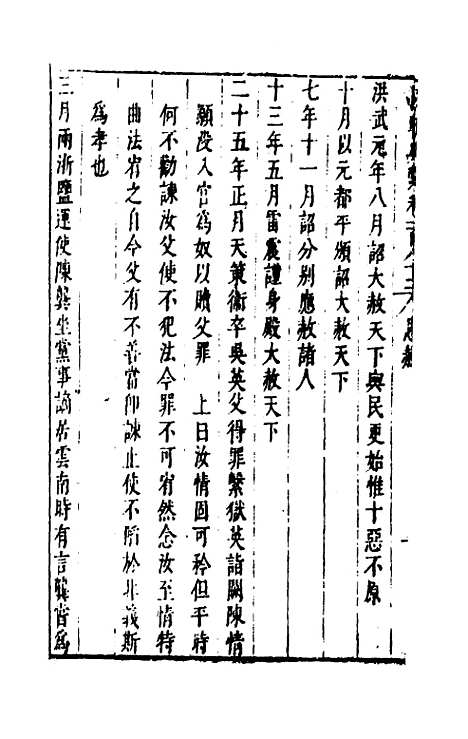 洪武元年八月詔大赦天下與民更始惟十惡不原
十月以元都平頒詔大赦天下
七年十一月詔分别應赦諸人
十三年五月雷震謹身殿大赦天下
二十五年正月天策衛卒吳英父得罪繫獄英詣闕陳情
願没入官為奴以贖父罪 上曰汝情固可矜但平時
何不勸諫汝父使不犯法今罪不可宥然念汝至情特
曲法宥之自今父有不善當仰諫止使不陷於非義斯
為孝也
三月兩浙鹽運使陳龔坐黨事謫居雲南時有言龔嘗為